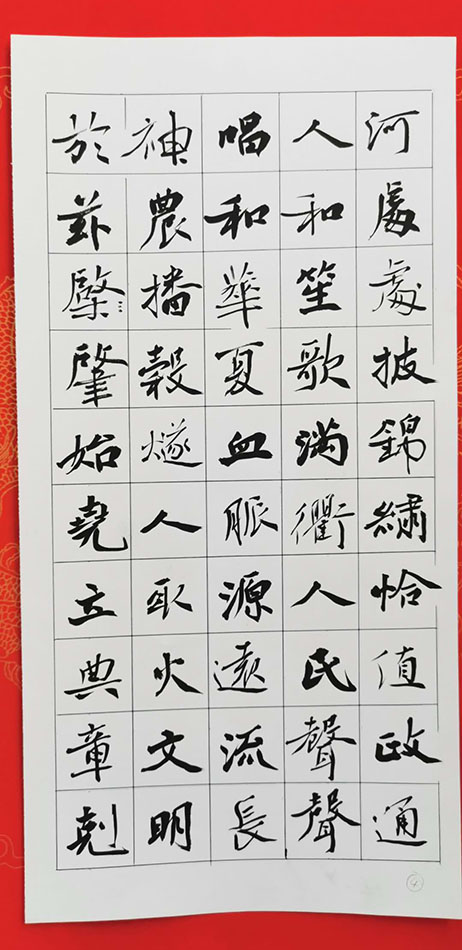 河處處披錦繡恰值政通
人和笙歌滿衢人民聲聲
唱和華夏血脈源遠流長
神農播穀燧人取火文明
於肇始堯立典章剋
④